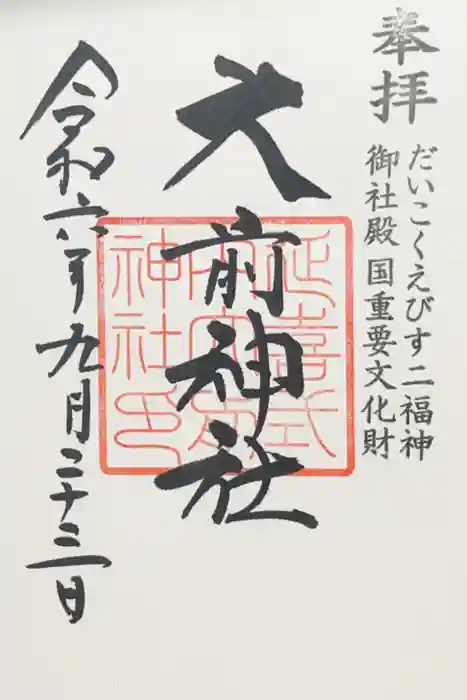 奉拝
だいこくえびす二福神
御社殿国重要文化財
大前神社
延喜式
内大前
神社印
令和六年九月二十三日